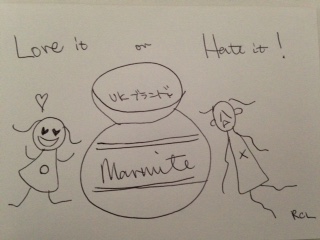 Love it or Hate it!
UKブランド
Marmite
RCL